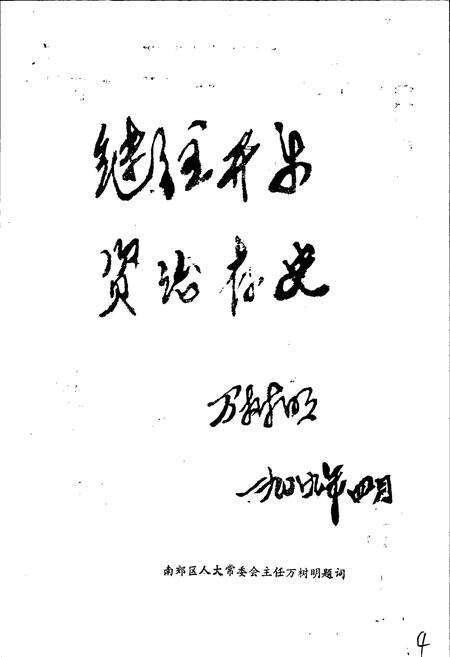 继往开来
资治存史
万树明
一九八九年四月
南郊区人大常委会主任万树明题词
4